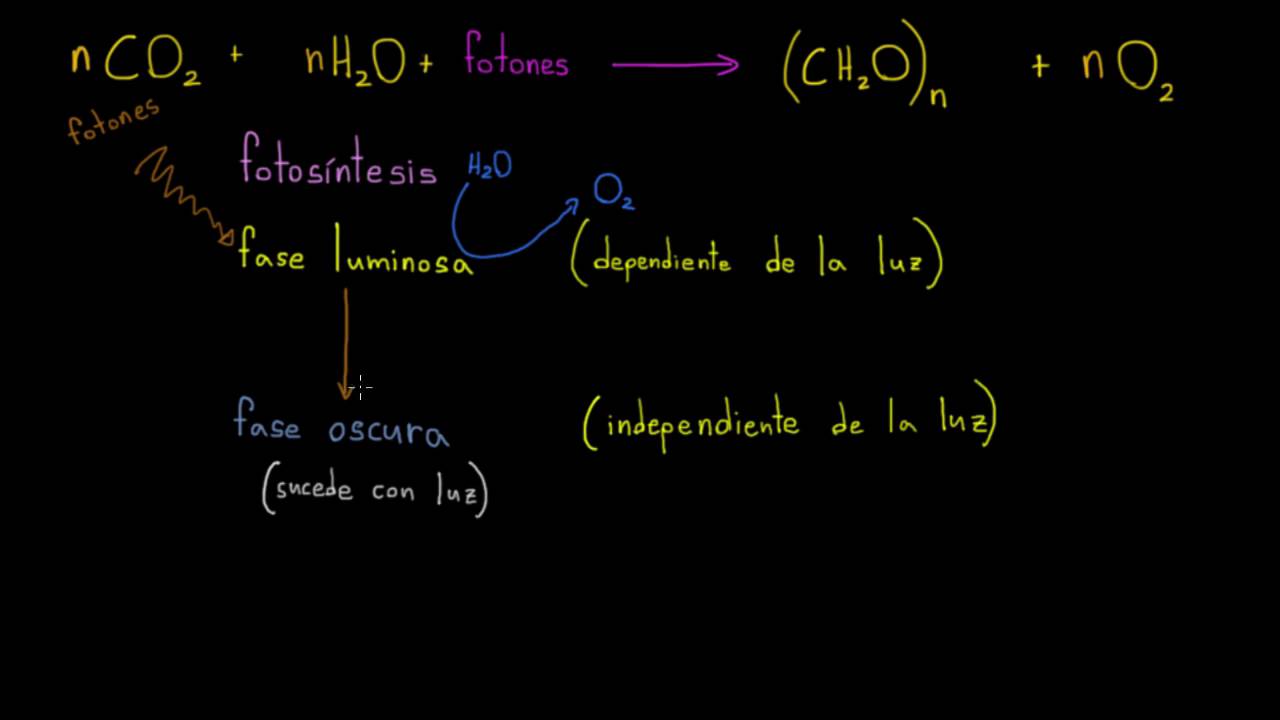 nCO₂ + nH₂O + fotones → (CH₂O)n + nO₂
fotones
fotosíntesis H₂O O₂
fase luminosa (dependiente de la luz)
fase oscura (independiente de la luz)
(sucede con luz)